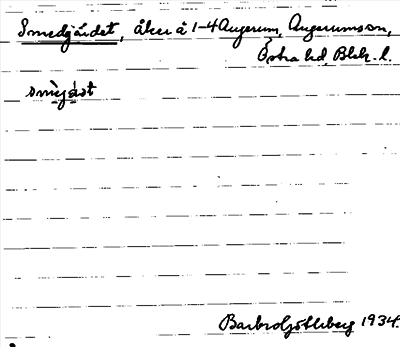 Smedgärdet, åker å 1-4 Augerum, Augerums sn,
Östra hd, Blek. l.
smèjást
Barbro Götleberg 1934.